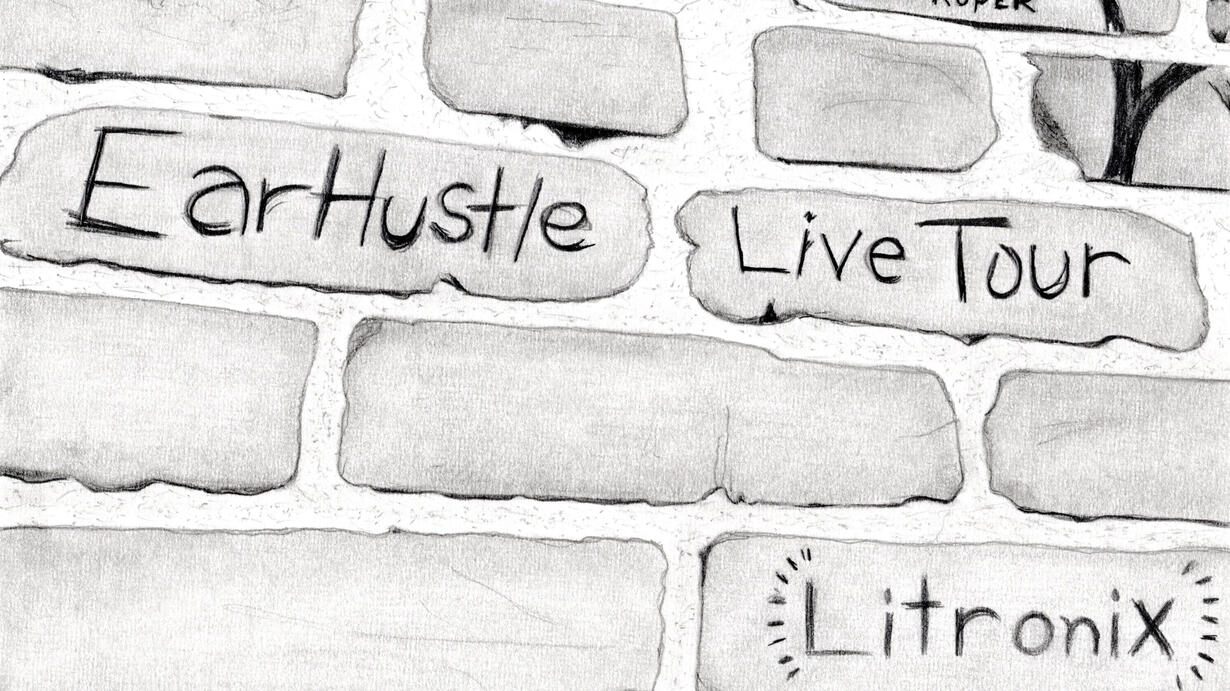 RUPER
EarHustle
Live Tour
Litronix